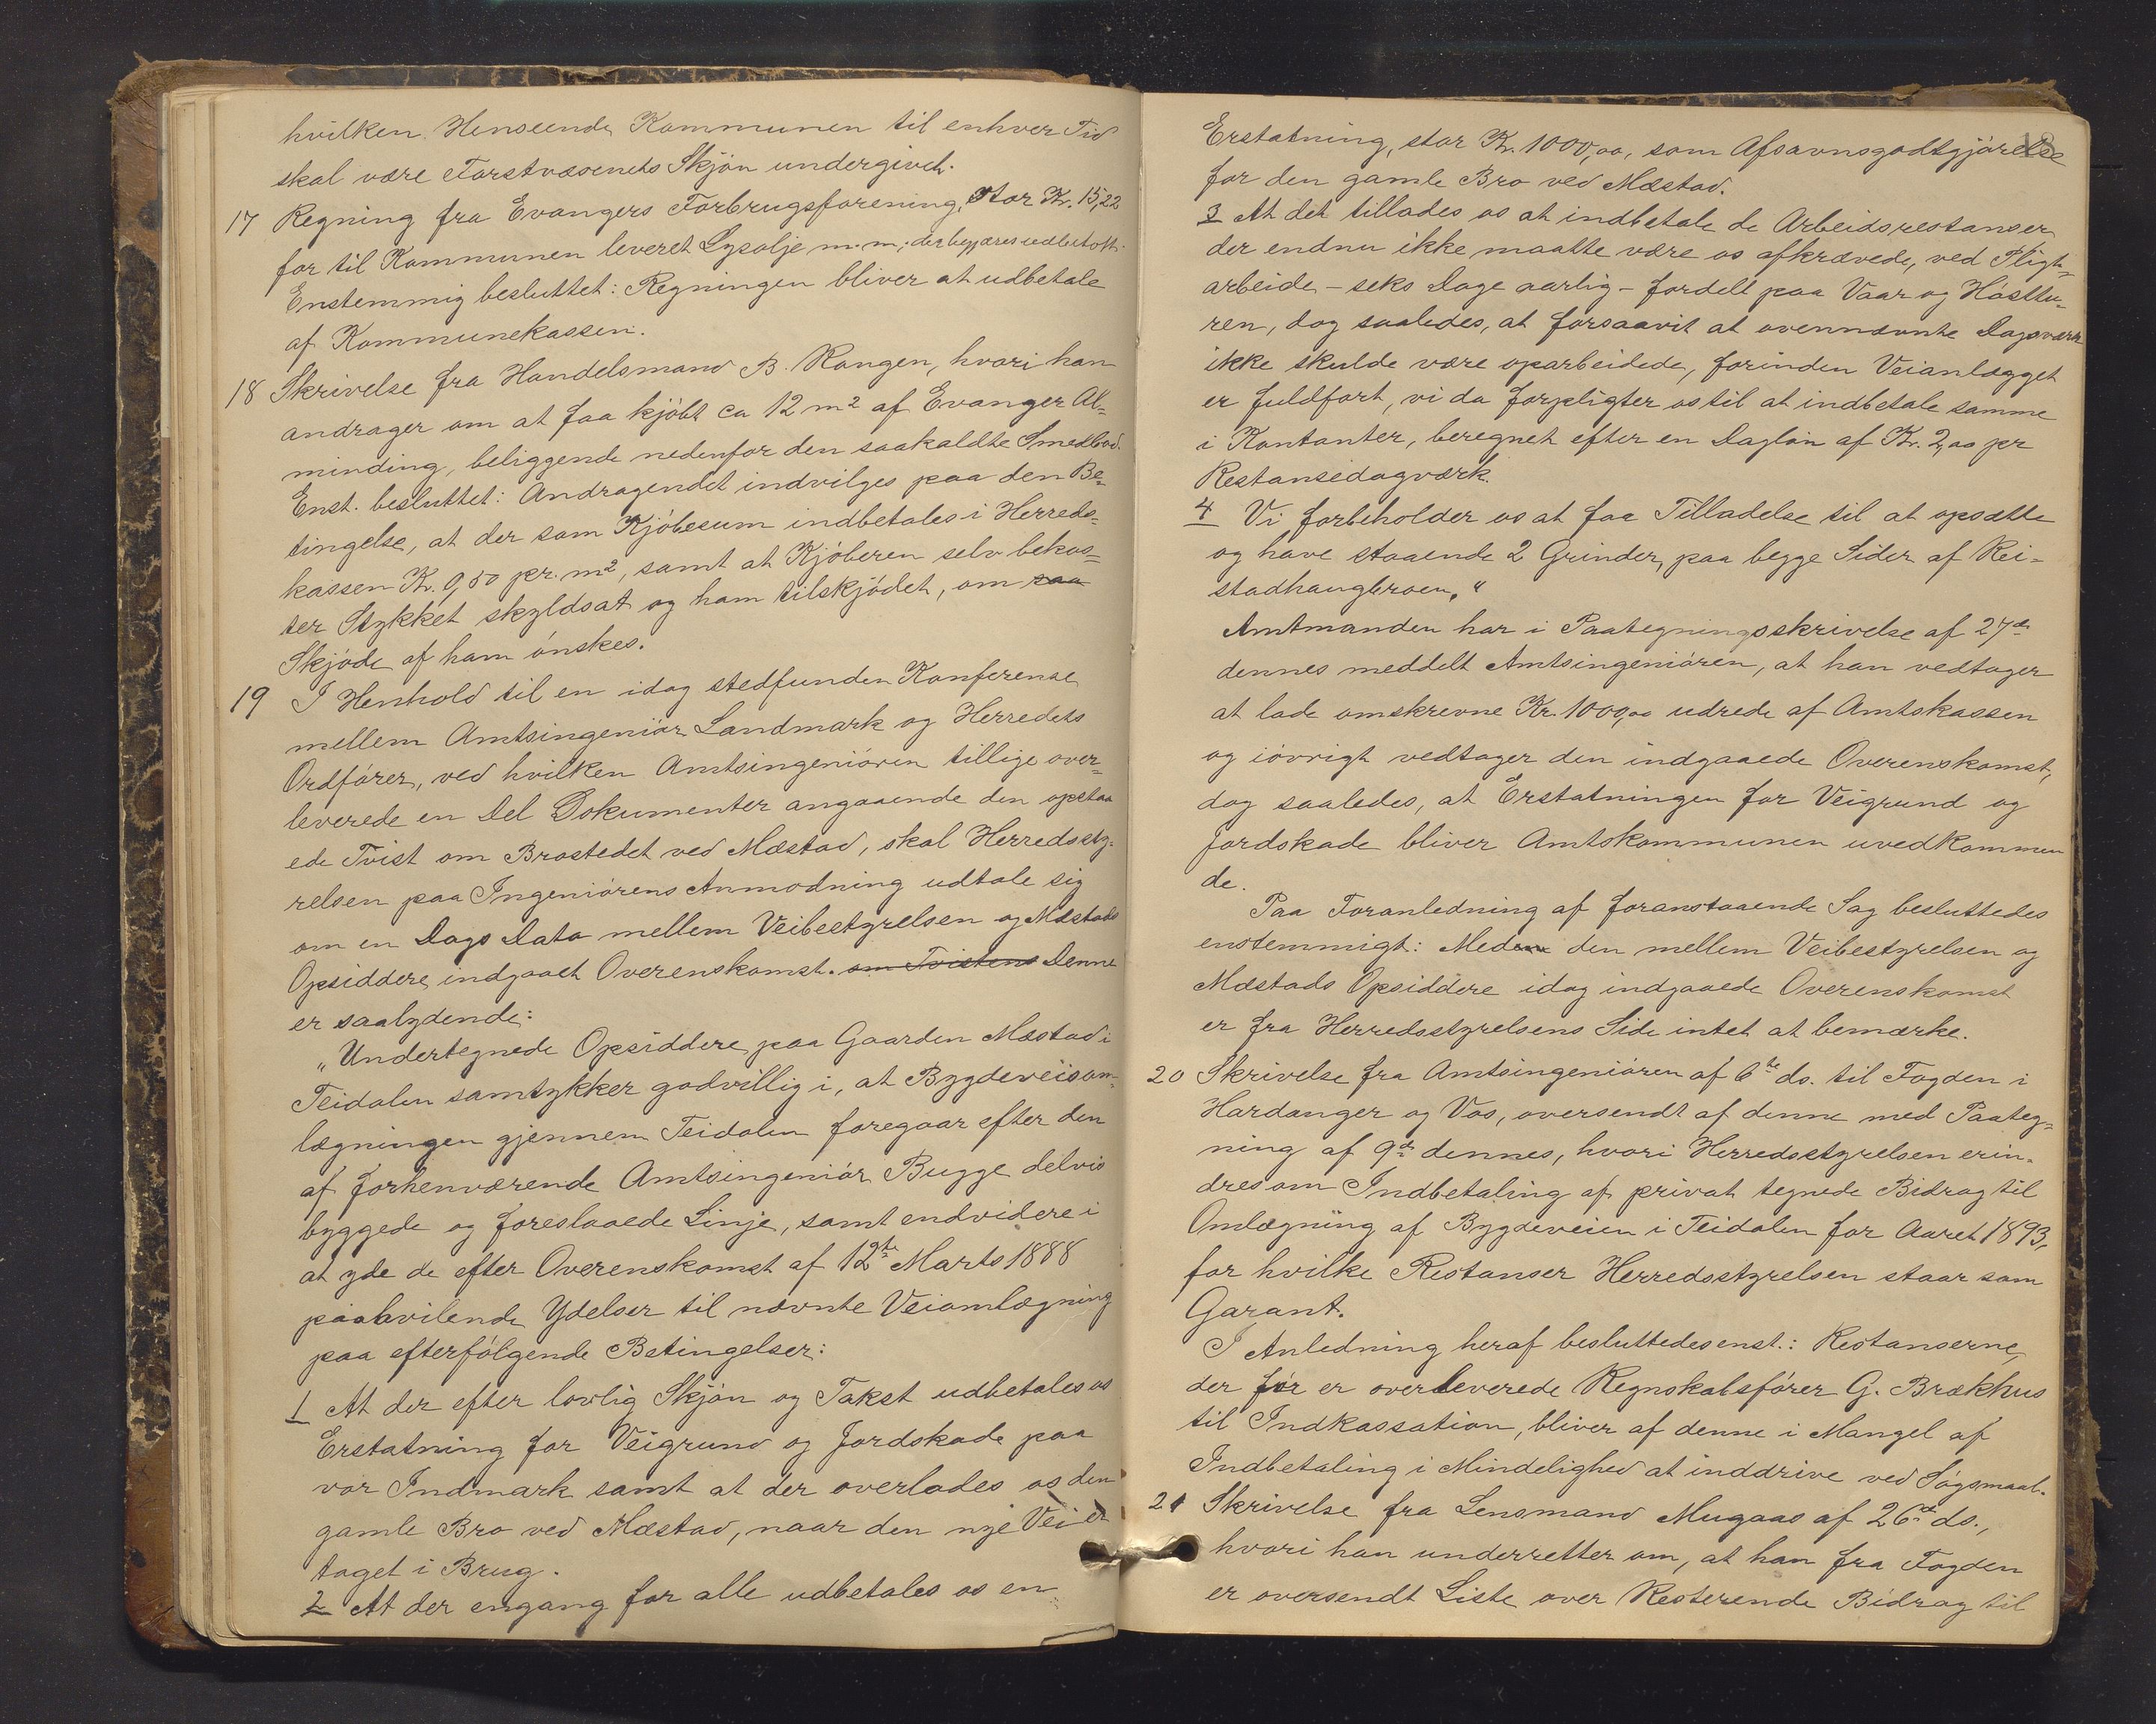 hvilken Henseende Kommunen til enhver Tid
skal være Forstvæsenets Skjøn undergivet.
17 Regning fra Evangers Forbrugsforening, stor Kr. 15,22
for til Kommunen leveret Lysolje m. m; der begjæres udbetalt.
Enstemmig besluttet: Regningen bliver at udbetale
af Kommunekassen.
18 Skrivelse fra Handelsmand B. Rongen, hvori han
andrager om at faa kjøbt ca 12 m² af Evanger Al-
minding, beliggende nedenfor den saakaldte Smedbod.
Enst. besluttet: Andragendet indvilges paa den Be-
tingelse, at der som Kjøbesum indbetales i Herreds-
kassen Kr. 0,50 pr. m², samt at Kjøberen selv bekos-
ter Stykket skyldsat og ham tilskjødet, om saa
Skjøde af ham ønskes.
19 I Henhold til en idag stedfunden Konferense
mellem Amtsingeniør Landmark og Herredets
Ordfører, ved hvilken Amtsingeniøren tillige over-
leverede en Del Dokumenter angaaende den opstaa
ede Tvist om Brostedet ved Mæstad, skal Herredssty-
relsen paa Ingeniørens Anmodning udtale sig
om en Dags Dato mellem Veibestyrelsen og Mæstads
Opsiddere indgaaet Overenskomst. om Tvistens Denne
er saalydende:
„Undertegnede Opsiddere paa Gaarden Mæstad i
Teidalen samtykker godvillig i, at Bygdeveisom-
lægningen gjennem Teidalen foregaar efter den
af forhenværende Amtsingeniør Bugge delvis
byggede og foreslaaede Linje, samt endvidere i
at yde de efter Overenskomst af 12te Marts 1888
paahvilende Ydelser til nævnte Veiomlægning
paa efterfølgende Betingelser:
1 At der efter lovlig Skjøn og Takst udbetales os
Erstatning for Veigrund og Jordskade paa
vor Indmark samt at der overlades os den
gamle Bro ved Mæstad, naar den nye Vei er
taget i Brug.
2 At der engang for alle udbetales os en
Erstatning, stor Kr. 1000,00, som Afsavnsgodtgjørelse
for den gamle Bro ved Mæstad.
3 At det tillades os at indbetale de Arbeidsrestanser
der endnu ikke maatte være os afkrævede, ved Pligt-
arbeide – seks Dage aarlig – fordelt paa Vaar og Høsttu-
ren, dog saaledes, at forsaavit at ovennævnte Dagsværk
ikke skulde være oparbeidede, forinden Veianlægget
er fuldført, vi da forpligter os til at indbetale samme
i Kontanter, beregnet efter en Dagløn af Kr. 2,00 pr
Restansedagværk.
4 Vi forbeholder os at faa Tilladelse til at opsætte
og have staaende 2 Grinder, paa begge Sider af Rei-
stadhaugbroen."
Amtmanden har i Paategningsskrivelse af 27de
dennes meddelt Amtsingeniøren, at han vedtager
at lade omskrevne Kr. 1000,00 udrede af Amtskassen
og iøvrigt vedtager den indgaaede Overenskomst,
dog saaledes, at Erstatningen for Veigrund og
Jordskade bliver Amtskommunen uvedkommen
de.
Paa Foranledning af foranstaaende Sag besluttedes
enstemmigt: Mod den mellem Veibestyrelsen og
Mæstads Opsiddere idag indgaaede Overenskomst
er fra Herredsstyrelsens Side intet at bemærke.
20 Skrivelse fra Amtsingeniøren af 6te ds. til Fogden i
Hardanger og Vos, oversendt af denne med Paateg-
ning af 9de dennes, hvori Herredsstyrelsen erin-
dres om Indbetaling af privat tegnede Bidrag til
Omlægning af Bygdeveien i Teidalen for Aaret 1893,
for hvilke Restanser Herredsstyrelsen staar som
Garant.
I Anledning heraf besluttedes enst.: Restanserne,
der før er overleverede Regnskabsfører G. Brækhus
til Indkassation, bliver af denne i Mangel af
Indbetaling i Mindelighed at inddrive ved Søgsmaal.
21 Skrivelse fra Lensmand Mugaas af 26de ds.,
hvori han underretter om, at ham fra Fogden
er oversendt Liste over Resterende Bidrag til